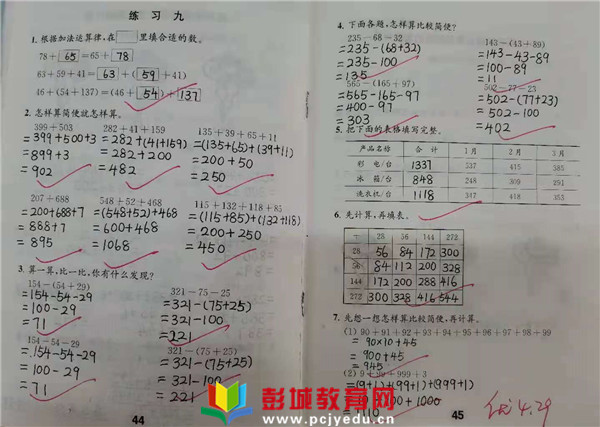 练习九
1. 根据加法运算律,在□里填合适的数。
78+65=65+78
63+59+41=63+(59+41)
46+(54+137)=(46+54)+137
2. 怎样算简便就怎样算。
399+503
=399+500+3
=899+3
=902
282+41+159
=282+(41+159)
=282+200
=482
135+39+65+11
=(135+65)+(39+11)
=200+50
=250
207+688
=200+688+7
=888+7
=895
548+52+468
=(548+52)+468
=600+468
=1068
115+132+118+85
=(115+85)+(132+118)
=200+250
=450
3. 算一算,比一比,你有什么发现?
154-(54+29)
=154-54-29
=100-29
=71
321-75-25
=321-(75+25)
=321-100
=221
154-54-29
=154-54-29
=100-29
=71
321-(75+25)
=321-(75+25)
=321-100
=221
44
4. 下面各题,怎样算比较简便?
235-68-32
=235-(68+32)
=235-100
=135
143-(43+89)
=143-43-89
=100-89
=11
565-(165+97)
=565-165-97
=400-97
=303
502-77-23
=502-(77+23)
=502-100
=402
5. 把下面的表格填写完整。
产品名称 合计 1月 2月 3月
彩电/台 1337 537 415 385
冰箱/台 848 248 309 291
洗衣机/台 1118 347 418 353
6. 先计算,再填表。
+ 28 56 144 272
28 56 84 172 300
56 84 112 200 328
144 172 200 288 416
272 300 328 416 544
7. 先想一想怎样算比较简便,再计算。
(1) 90+91+92+93+94+95+96+97+98+99
=90×10+45
=900+45
=945
(2) 9+99+999+3
=(9+1)+(99+1)+(999+1)
1000
1110
45
优 4.29
彭城教育网
www.pcjyedu.cn